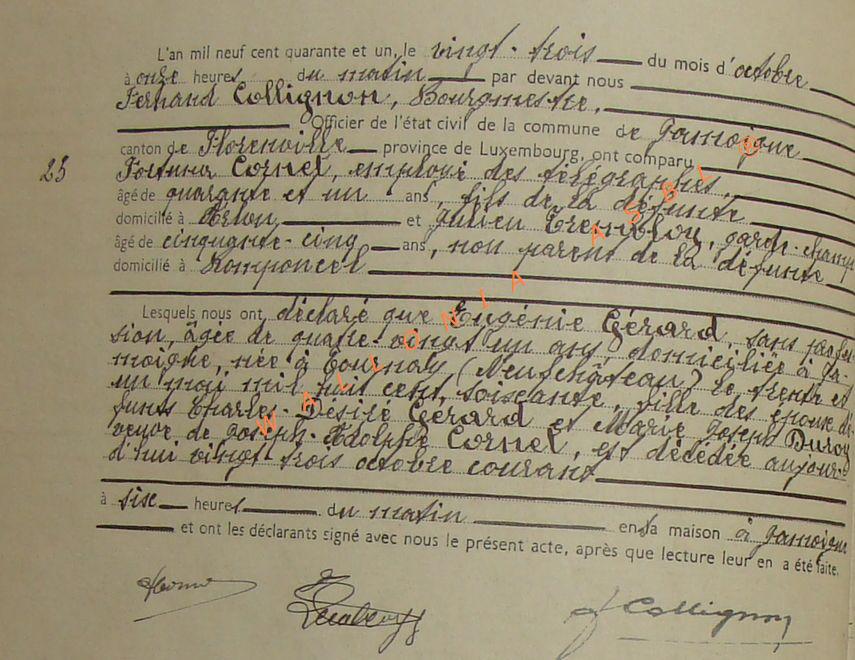 L'an mil neuf cent quarante et un, le vingt-trois du mois d'octobre
à onze heures du matin par devant nous
Fernand Collignon, Bourgmestre,
Officier de l'état civil de la commune de Jamoigne
canton de Florenville province de Luxembourg, ont comparu
23
Fortuna Cornet, employé des télégraphes,
âgé de quarante et un ans, fils de la défunte
domicilié à Arlon et Julien, garde-champ
âgé de cinquante-cinq ans, non parent de la défunte
domicilié à Romponcel
Lesquels nous ont déclaré que Eugénie Gérard, sans profes
sion, âgée de quatre-vingt un ans, domiciliée à Ja-
moigne, née à Tournay (Neufchâteau) le trente et
un mai mil huit cent soixante, fille des époux dé-
funts Charles-Désiré Gérard et Marie Joseph Duroy
veuve de Joseph-Adolphe Cornet, est décédée aujour-
d'hui vingt trois octobre courant
à sise heures du matin en sa maison à Jamoigne
et ont les déclarants signé avec nous le présent acte, après que lecture leur en a été faite.
F Collignon
WALLONIA ASBL